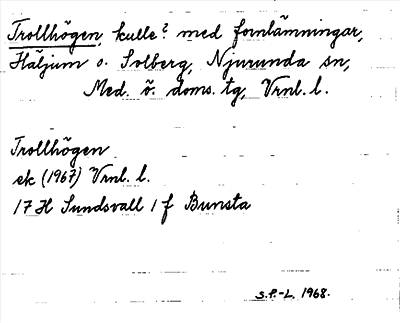 Trollhögen, kulle? med fornlämningar,
Häljum o. Solberg, Njurunda sn,
Med. ö. doms. tg, Vrnl. l.
Trollhögen
ek (1967) Vrnl. l.
17 H Sundsvall 1 f Bunsta
S.P.-L. 1968.